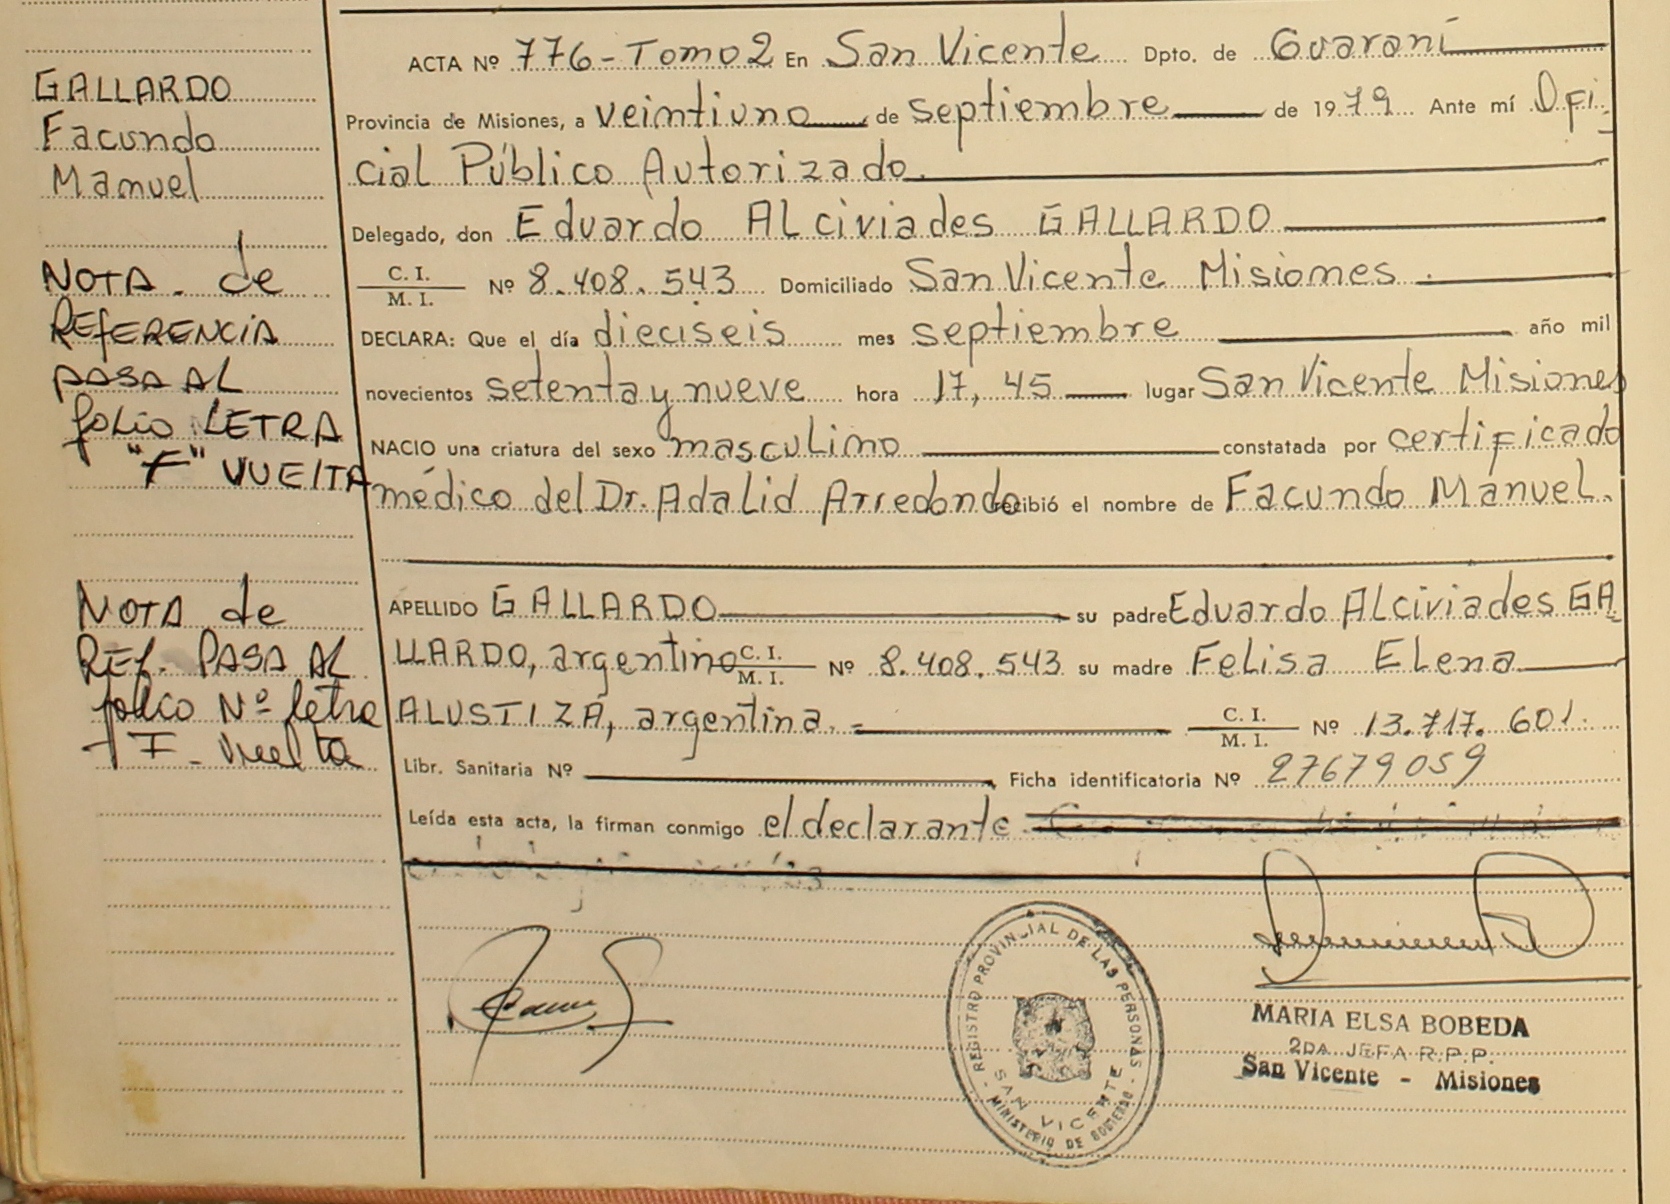 GALLARDO
Facundo
Manuel
NOTA de
REFERENCIA
PASA AL
folio LETRA
"F" VUELTA
NOTA de
REF. PASA AL
folio Nº letra
F - Vuelta
ACTA Nº 776 - Tomo 2 En San Vicente Dpto. de Guaraní
Provincia de Misiones, a veintiuno de septiembre de 1979 Ante mí Ofi-
cial Público Autorizado.
Delegado, don Eduardo Alciviades GALLARDO
C. I. / M. I. Nº 8.408.543 Domiciliado San Vicente Misiones.
DECLARA: Que el día dieciseis mes septiembre año mil
novecientos setenta y nueve hora 17,45 lugar San Vicente Misiones
NACIO una criatura del sexo masculino constatada por certificado
médico del Dr. Adalid Arredondo recibió el nombre de Facundo Manuel.
APELLIDO GALLARDO su padre Eduardo Alciviades GA
LLARDO, argentino C. I. / M. I. Nº 8.408.543 su madre Felisa Elena
ALUSTIZA, argentina. C. I. / M. I. Nº 13.717.601.
Libr. Sanitaria Nº Ficha identificatoria Nº 27679059
Leída esta acta, la firman conmigo el declarante
REGISTRO PROVINCIAL DE LAS PERSONAS
SAN VICENTE
MINISTERIO DE GOBIERNO
MARIA ELSA BOBEDA
2DA JEFA R.P.P.
San Vicente - Misiones